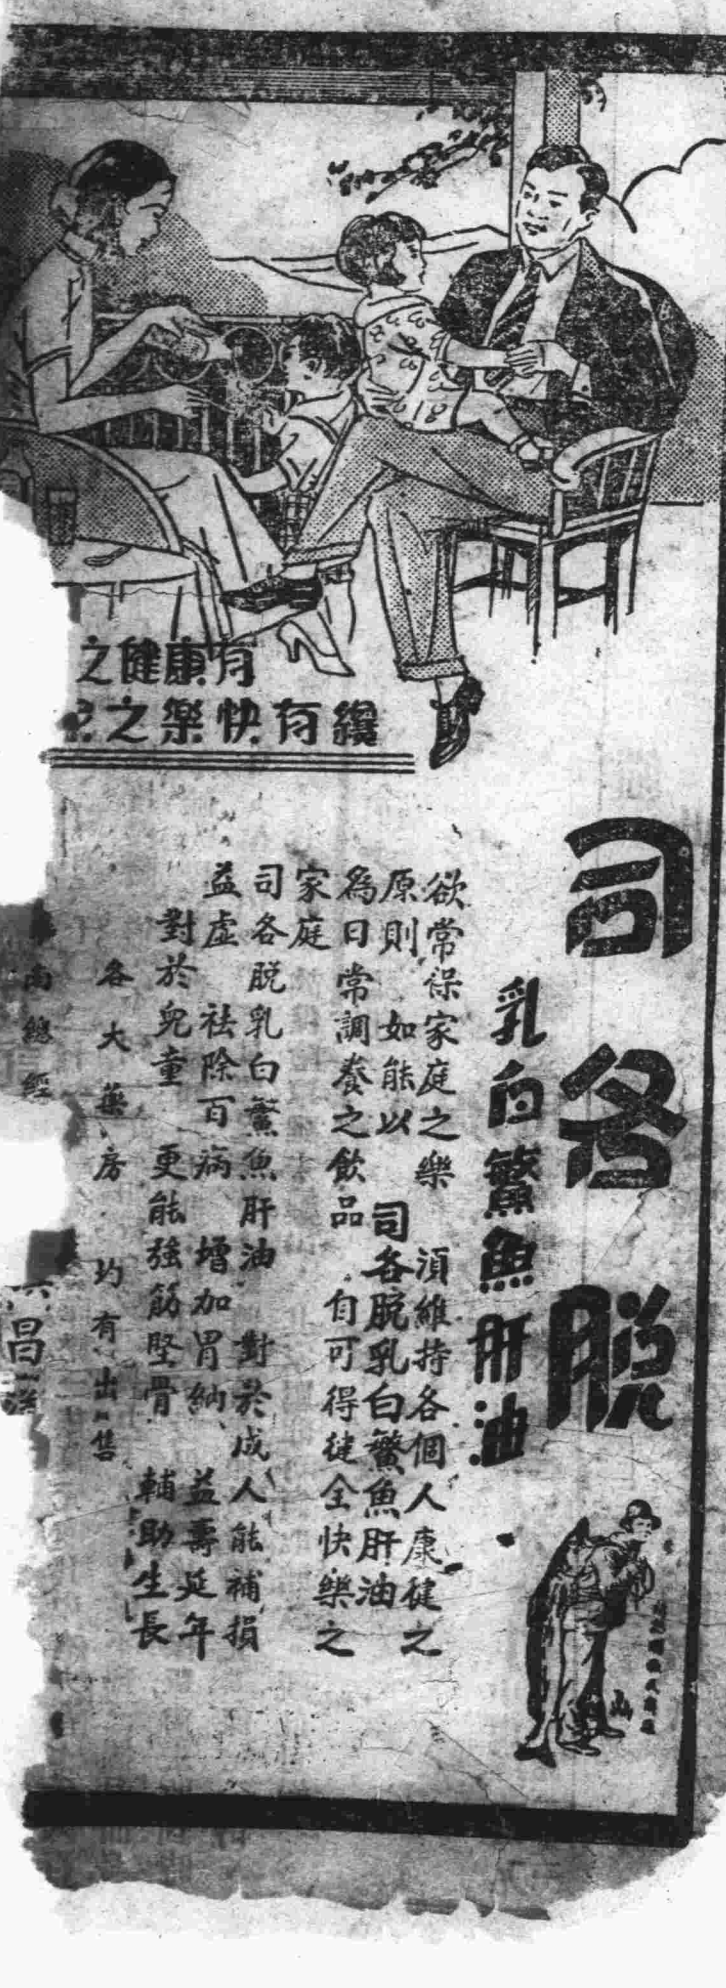 有康健之
纔有快樂之
司各脫
乳白鰵魚肝油
欲常保家庭之樂 須維持各個人康健之
原則 如能以 司各脫乳白鰵魚肝油
為日常調養之飲品 自可得健全快樂之
家庭
司各脫乳白鰵魚肝油 對於成人能補損
益虛 祛除百病 增加胃納 益壽延年
對於兒童 更能強筋堅骨 輔助生長
各大藥房 均有出售
南總經
昌